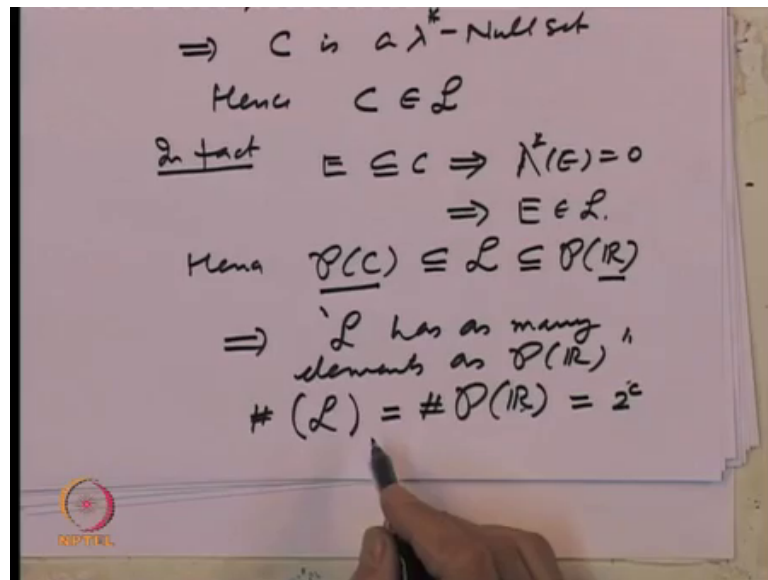 ⇒ C is a λ* - Null set
Hence C ∈ ℒ
In fact E ⊆ C ⇒ λ*(E) = 0
⇒ E ∈ ℒ.
Hence 𝒫(C) ⊆ ℒ ⊆ 𝒫(ℝ)
⇒ "ℒ has as many
elements as 𝒫(ℝ)"
# (ℒ) = # 𝒫(ℝ) = 2ᶜ
NPTEL